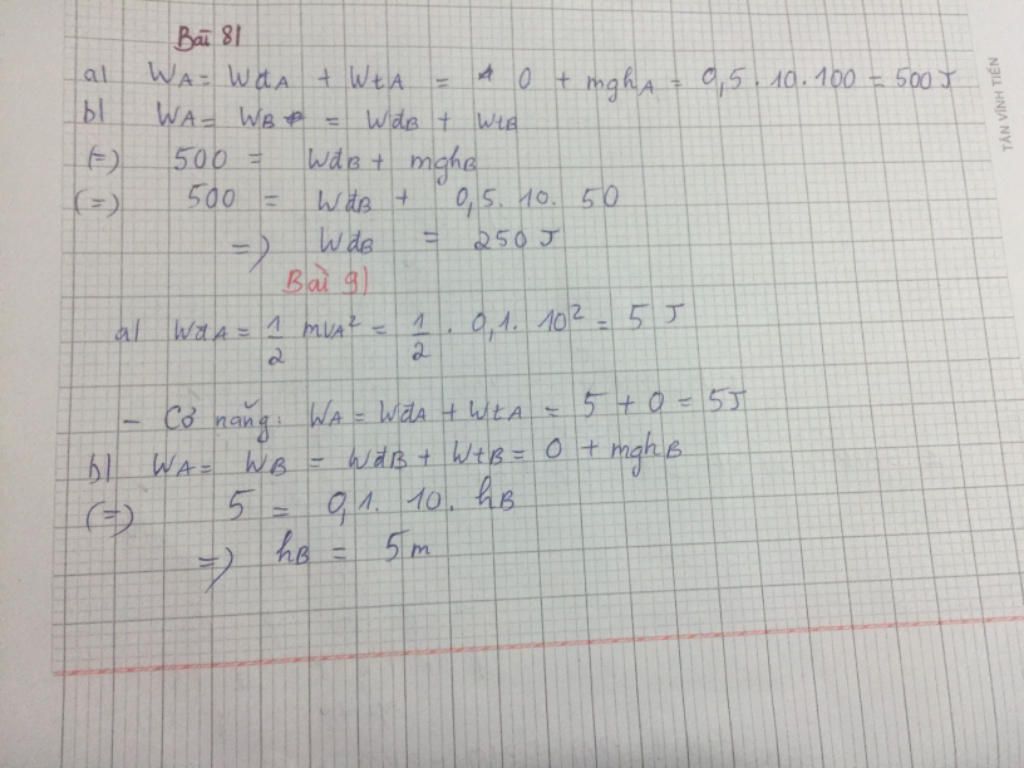 Bài 8|
a| WA = WđA + WtA = 0 + mghA = 0,5 . 10 . 100 = 500 J
b| WA = WB = WđB + WtB
(=) 500 = WđB + mghB
(=) 500 = WđB + 0,5. 10. 50
=) WđB = 250 J
Bài 9|
a| WđA = 1/2 mvA² = 1/2 . 0,1. 10² = 5 J
- Cơ năng: WA = WđA + WtA = 5 + 0 = 5J
b| WA = WB = WđB + WtB = 0 + mghB
(=) 5 = 0,1. 10. hB
=) hB = 5m
TÂN VĨNH TIẾN